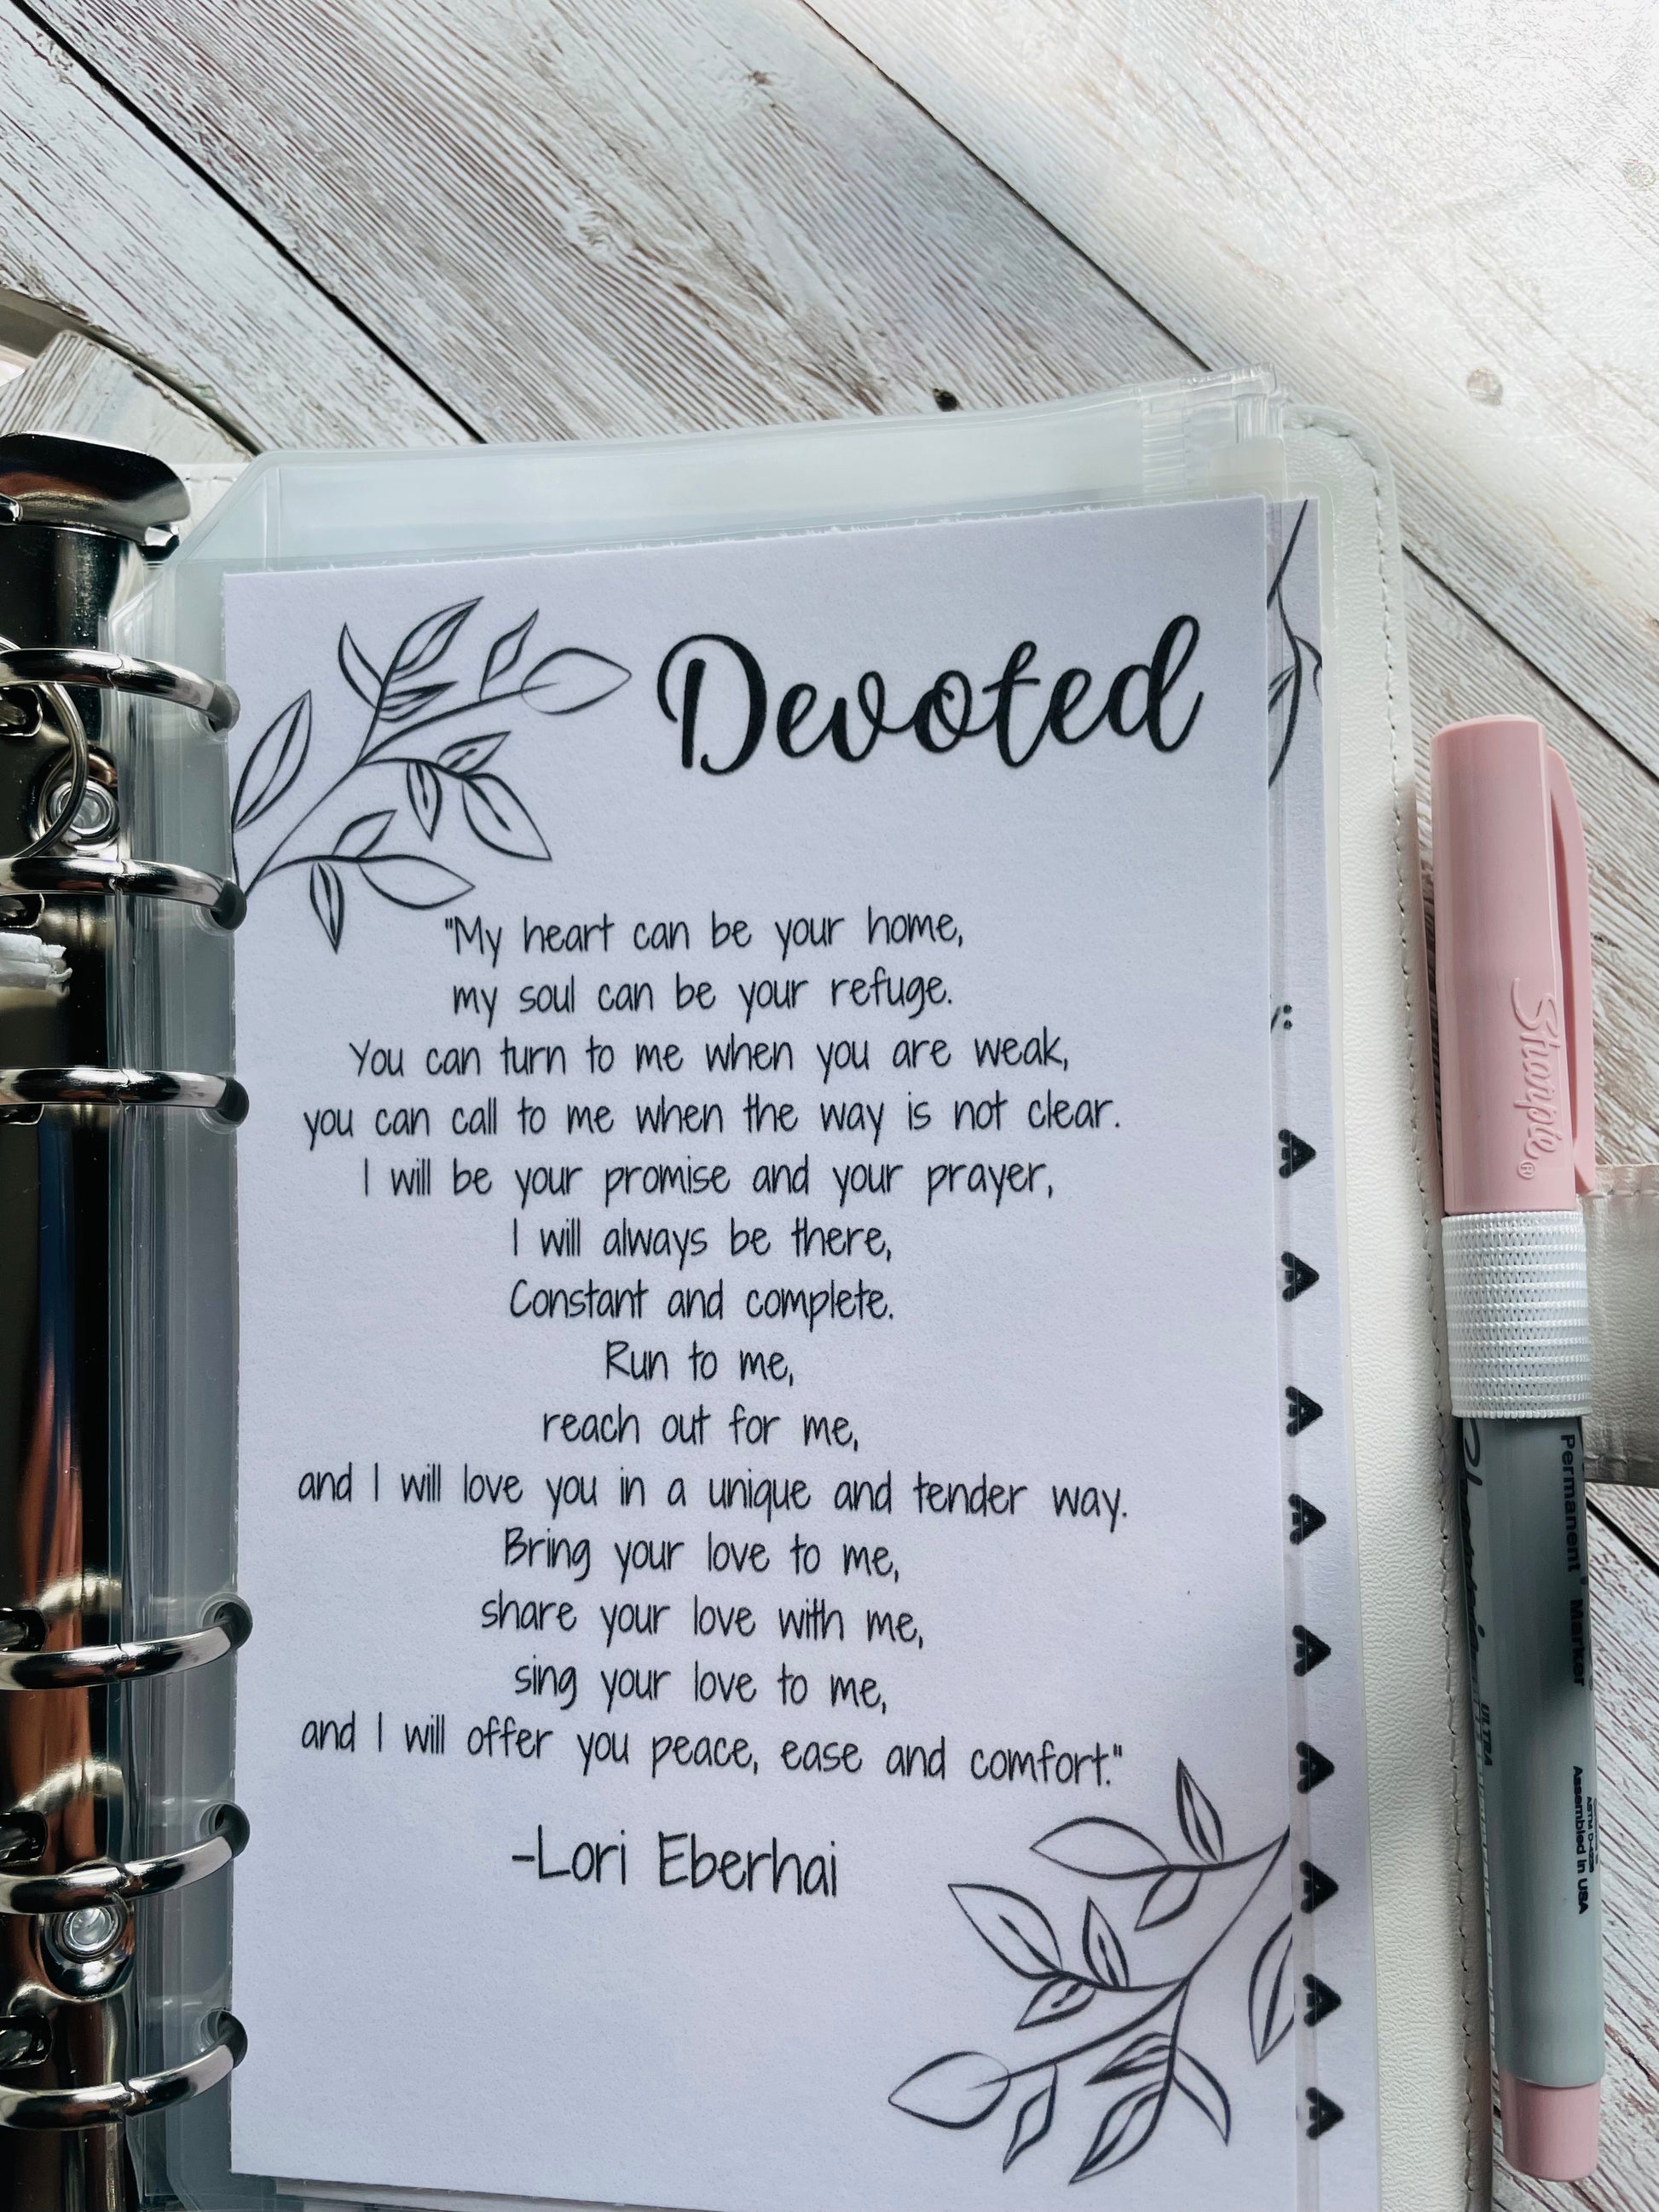 Devoted
"My heart can be your home,
my soul can be your refuge.
You can turn to me when you are weak,
you can call to me when the way is not clear.
I will be your promise and your prayer,
I will always be there,
Constant and complete.
Run to me,
reach out for me,
and I will love you in a unique and tender way.
Bring your love to me,
share your love with me,
sing your love to me,
and I will offer you peace, ease and comfort."
-Lori Eberhai
Sharpie®
Permanent Marker
ULTRA
ASTM D-4236
Assembled in USA